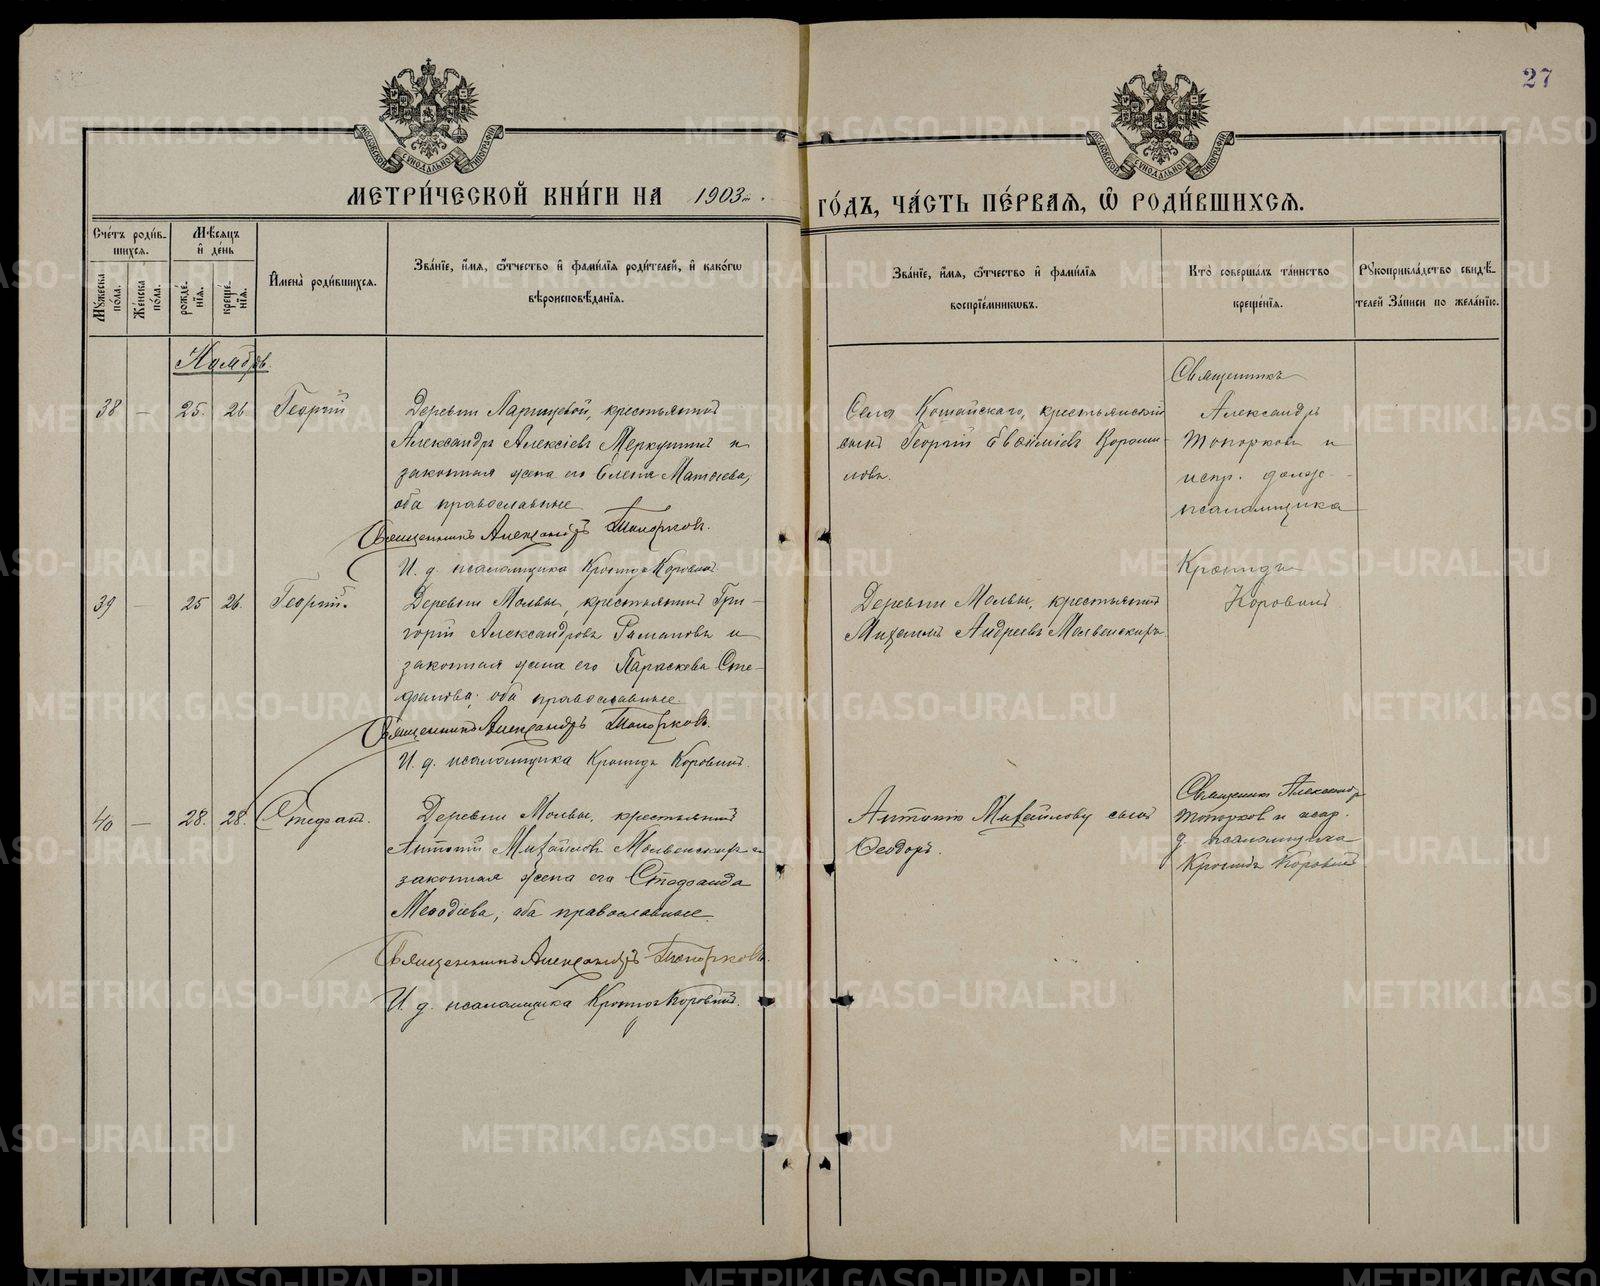 27
МОСКОВСКОЙ СѴНОДАЛЬНОЙ ТИПОГРАФІИ
МОСКОВСКОЙ СѴНОДАЛЬНОЙ ТИПОГРАФІИ
МЕТРИ́ЧЕСКОЙ КНИ́ГИ НА 1903 го́дъ, ча́сть пе́рвая, ѡ роди́вшихсѧ.
Сче́тъ роди́в-
шихсѧ.
Мꙋжеска по́ла.
Же́нска по́ла.
Мѣ́сѧцъ
и҆ де́нь
рожде́нїѧ.
креще́нїѧ.
И҆мена̀ роди́вшихсѧ.
Зва́нїе, и҆́мѧ, ѻ҆́тчество и҆ фами́лїѧ роди́телей, и҆ како́гѡ
вѣроисповѣ́данїѧ.
Зва́нїе, и҆́мѧ, ѻ҆́тчество и҆ фами́лїѧ
воспрїе́мникѡвъ.
Кто̀ соверша́лъ та́инство
креще́нїѧ.
Рꙋкоприкла́дство свидѣ́-
телей за́писи по жела́нїю.
Ноябрь.
38 — 25. 26 Георгій
Деревни Ларинцевой, крестьянинъ
Александръ Алексіевъ Меркушинъ и
законная жена его Елена Матѳіева,
оба православные
Священникъ Александръ Топорковъ.
И. д. псаломщика Кронидъ Коровинъ
Села Кошайскаго, крестьянскій
сынъ Георгій Евѳиміевъ Вороши-
ловъ.
Священникъ
Александръ
Топорковъ и
испр. долж.
псаломщика
Кронидъ
Коровинъ
39 — 25 26. Георгій.
Деревни Молвы, крестьянинъ Гри-
горій Александровъ Романовъ и
законная жена его Параскева Сте-
фанова, оба православные
Священникъ Александръ Топорковъ.
И. д. псаломщика Кронидъ Коровинъ.
Деревни Молвы, крестьянинъ
Михаилъ Андреевъ Молвенскихъ
40 — 28. 28. Стефанъ.
Деревни Молвы, крестьянинъ
Антоній Михайловъ Молвенскихъ и
законная жена его Стефанида
Меѳодіева, оба православные.
Священникъ Александръ Топорковъ.
И. д. псаломщика Кронидъ Коровинъ.
Антонію Михайлову сынъ
Ѳеодоръ.
Священникъ Александръ
Топорковъ и испр.
д. псаломщика
Кронидъ Коровинъ
METRIKI.GASO-URAL.RU